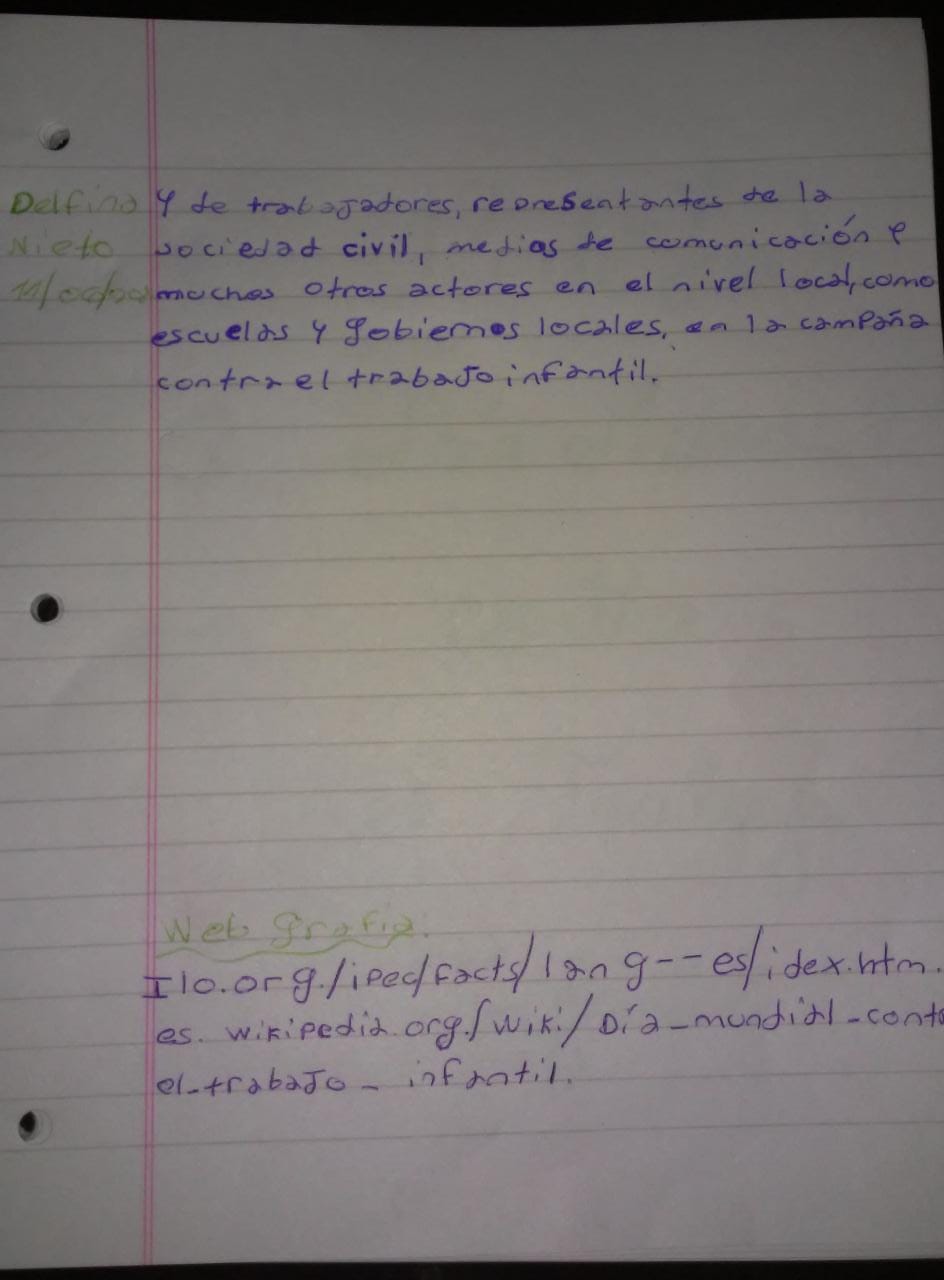 Delfino
Nieto
11/oct/20
Y de trabajadores, representantes de la
sociedad civil, medios de comunicación e
muchos otros actores en el nivel local, como
escuelas y gobiernos locales, en la campaña
contra el trabajo infantil.
Web grafia.
Ilo.org./ipec/facts/lang--es/idex.htm.
es. wikipedia.org./wiki/Día_mundial_conto
el_trabajo_infantil.